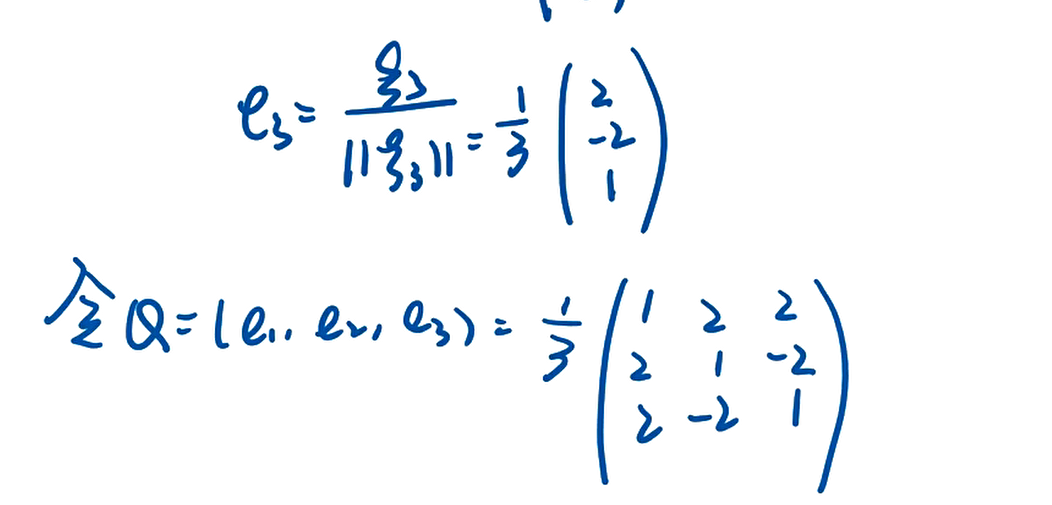 e₃ = ξ₃ / ||ξ₃|| = 1/3 (2 -2 1)
令 Q = (e₁, e₂, e₃) = 1/3 (1 2 2
2 1 -2
2 -2 1)